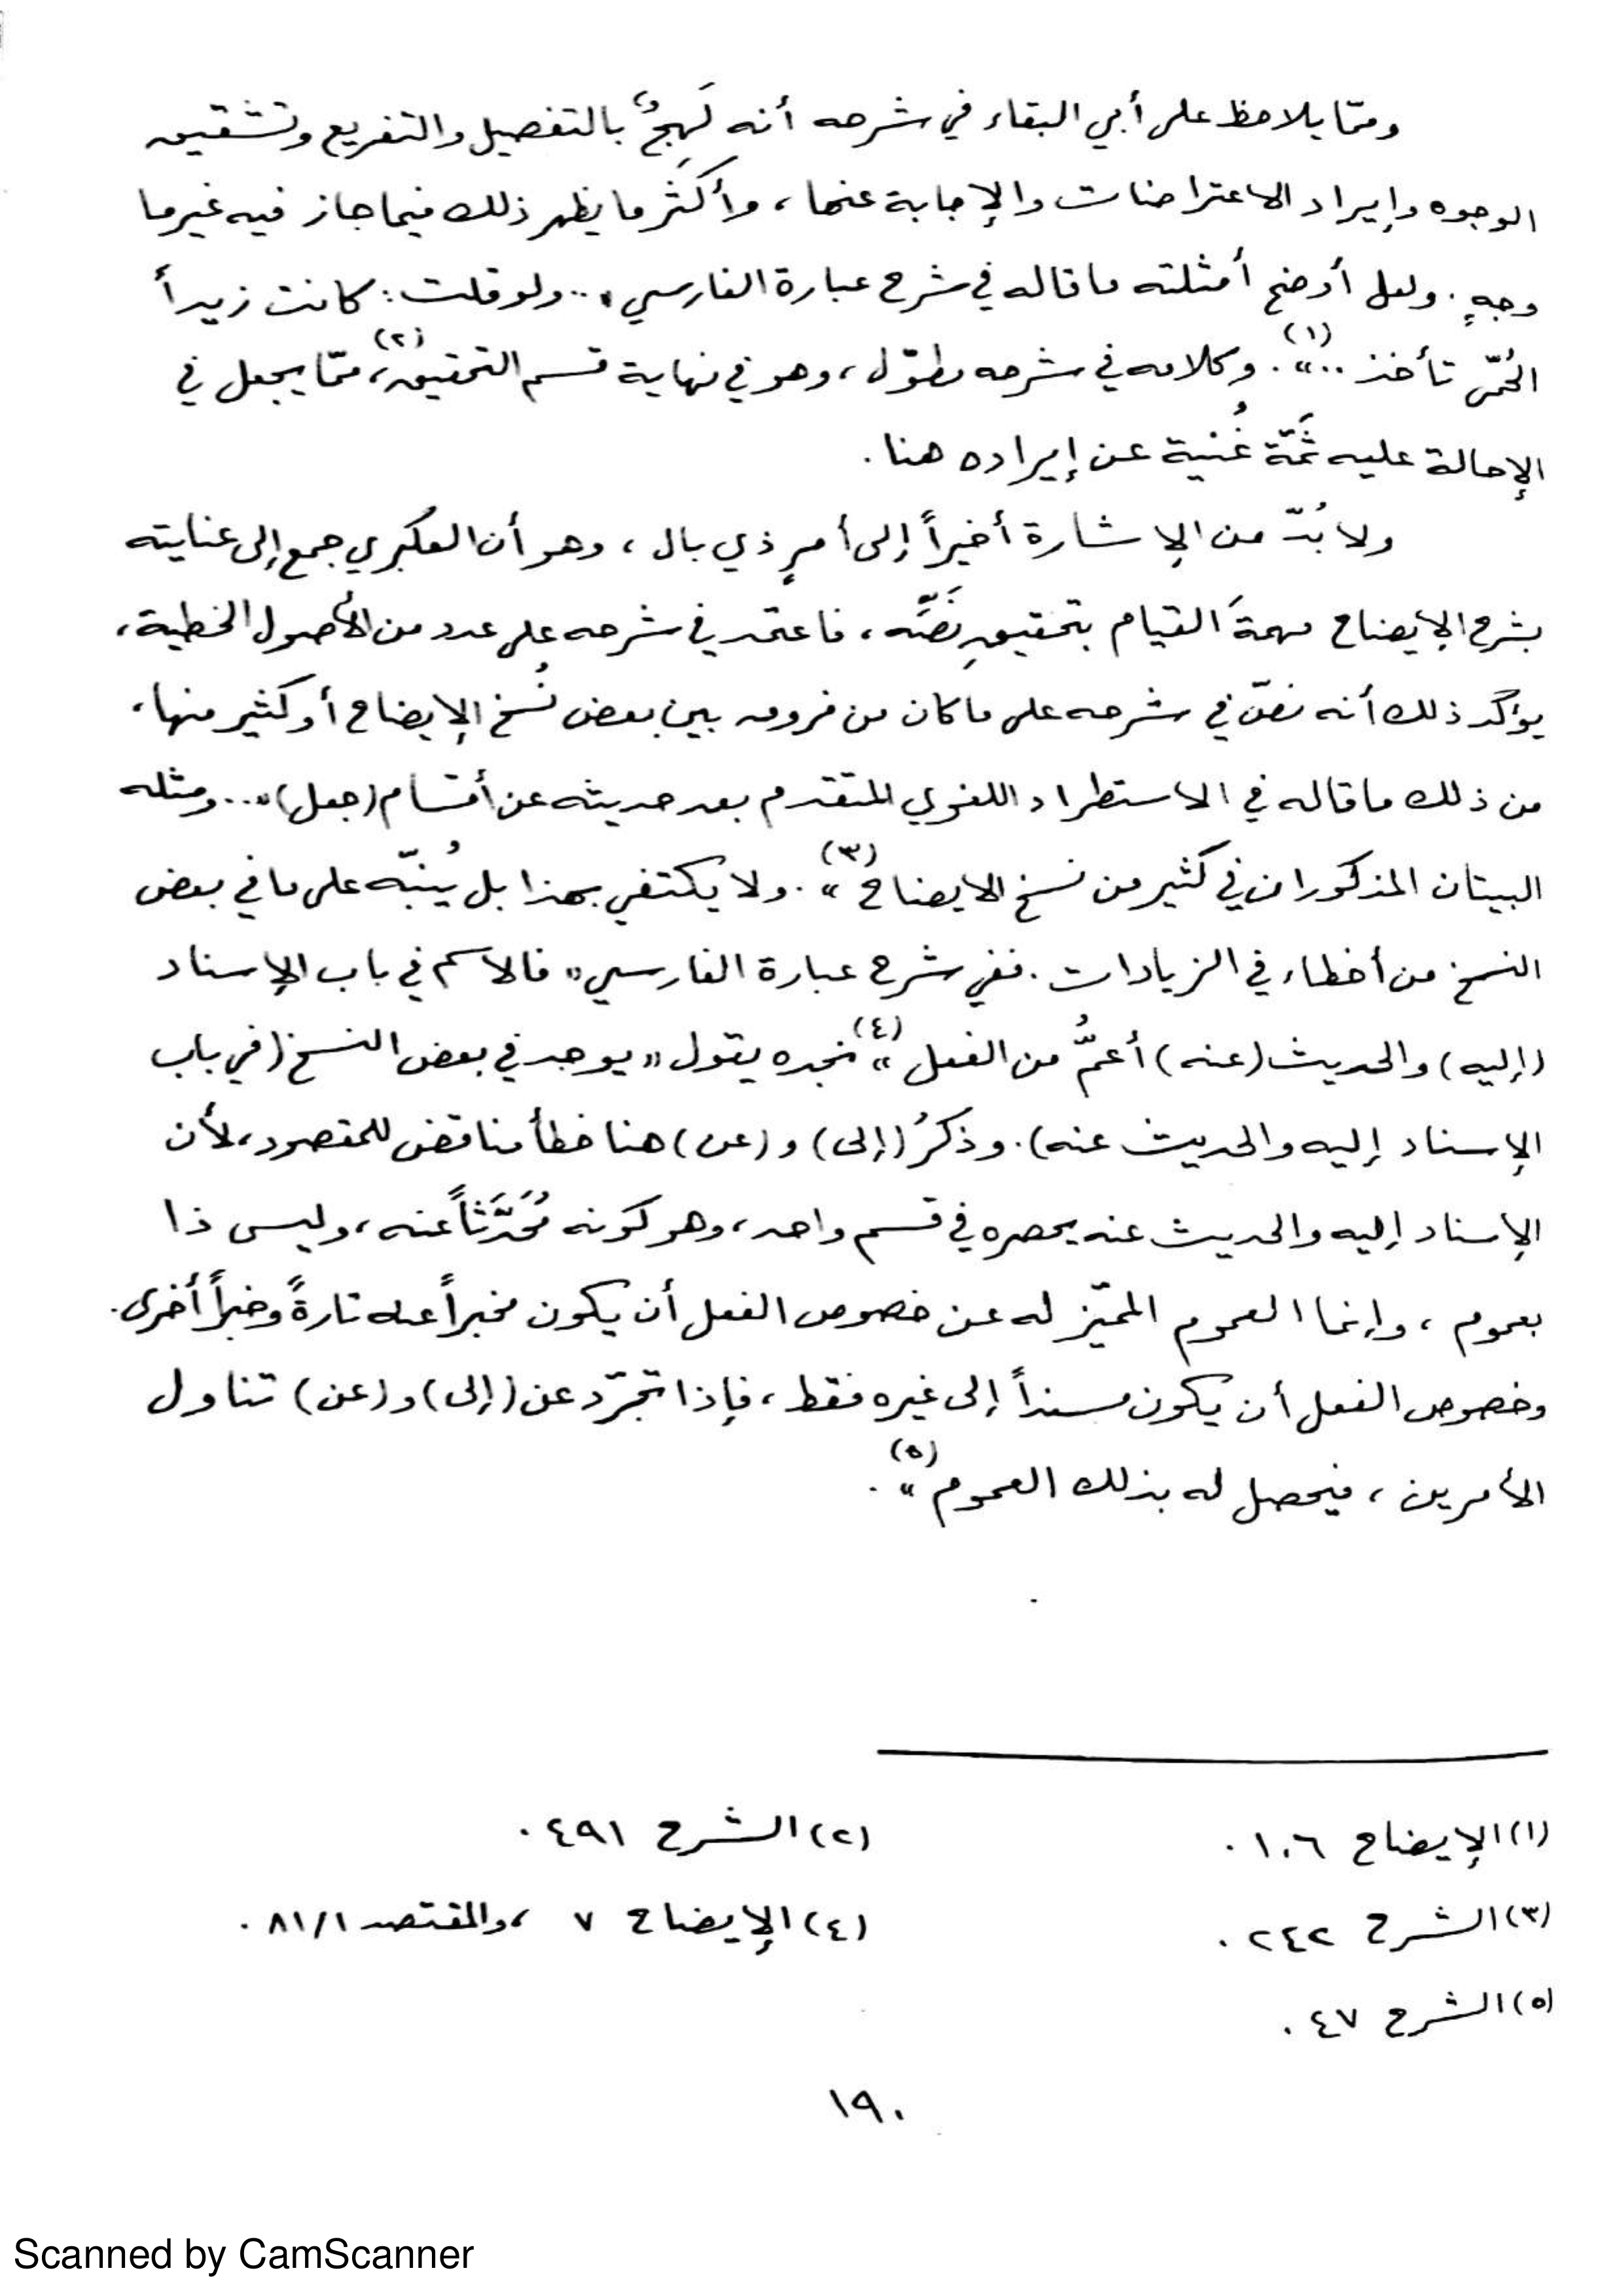 وممّا يلاحظ على أبي البقاء في شرحه أنه لَهِجٌ بالتفصيل والتفريع وتشقيق
الوجوه وإيراد الاعتراضات والإجابة عنها، وأكثَر ما يظهر ذلك فيما جاز فيه غير ما
وجهٍ. ولعل أوضح أمثلته ما قاله في شرح عبارة الفارسي «.. ولو قلت: كانت زيداً
الحُمّى تأخذ ..»(١). وكلامه في شرحه مطوّل، وهو في نهاية قسم التحقيق(٢)، ممّا يجعل في
الإحالة عليه ثَمّة غُنية عن إيراده هنا.
ولا بُدّ من الإشارة أخيراً إلى أمرٍ ذي بال، وهو أن العكبري جمع إلى عنايته
بشرح الإيضاح مهمةَ القيام بتحقيقِ نَصِّه، فاعتمد في شرحه على عدد من الأصول الخطية،
يؤكّد ذلك أنه نصّ في شرحه على ما كان من فروق بين بعض نُسخ الإيضاح أو كثير منها،
من ذلك ما قاله في الاستطراد اللغوي المتقدم بعد حديثه عن أقسام (جعل) «... ومثله
البيتان المذكوران في كثير من نسخ الايضاح»(٣). ولا يكتفي بهذا بل يُنبّه على ما في بعض
النسخ من أخطاء في الزيادات. ففي شرح عبارة الفارسي «فالاسم في باب الإسناد
(إليه) والحديث (عنه) أعمُّ من الفعل»(٤) نجده يقول «يوجد في بعض النسخ (في باب
الإسناد إليه والحديث عنه). وذكرُ (إلى) و(عن) هنا خطأ مناقض للمقصود، لأن
الإسناد إليه والحديث عنه يحصره في قسم واحد، وهو كونه مُحَدَّثاً عنه، وليس ذا
بعموم، وإنما العموم المميّز له عن خصوص الفعل أن يكون مخبراً عنه تارةً وخبراً أخرى.
وخصوص الفعل أن يكون مسنداً إلى غيره فقط، فإذا تجرّد عن (إلى) و(عن) تناول
الأمرين، فيحصل له بذلك العموم»(٥).
(١) الإيضاح ١٠٦.
(٢) الشرح ٤٩١.
(٣) الشرح ٢٤٢.
(٤) الإيضاح ٧، والمقتصد ٨١/١.
(٥) الشرح ٤٧.
١٩٠
Scanned by CamScanner